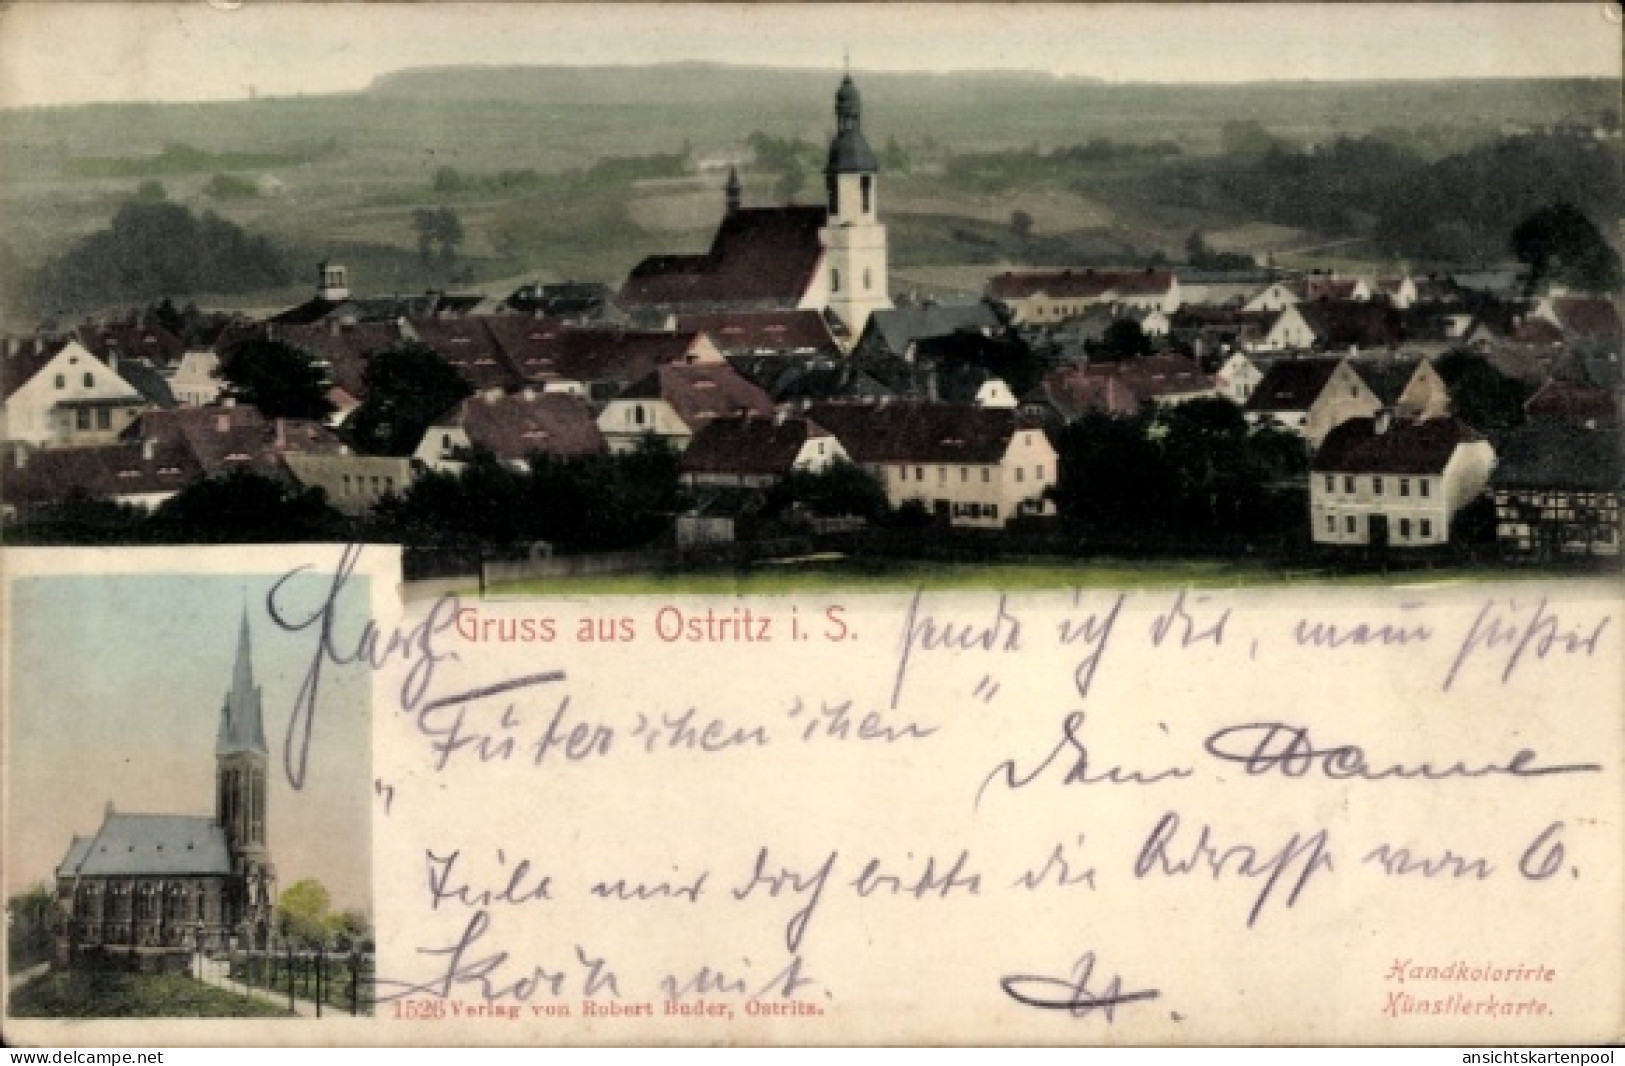 Gruss aus Ostritz i. S.
sende ich dir, mein süßes
"Füter'chen'ichen"
Dein Hanne
Teile mir doch bitte die Adresse von G.
Koch mit.
H.
1526 Verlag von Robert Buder, Ostritz.
Handkolorirte
Künstlerkarte.
www.delcampe.net
ansichtskartenpool